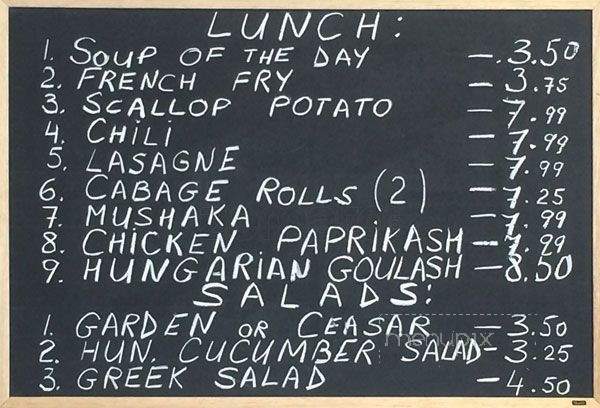 LUNCH:
1. SOUP OF THE DAY -.3.50
2. FRENCH FRY - 3.75
3. SCALLOP POTATO - 7.99
4. CHILI - 7.99
5. LASAGNE - 7.99
6. CABAGE ROLLS (2) - 7.25
7. MUSHAKA - 7.99
8. CHICKEN PAPRIKASH - 7.99
9. HUNGARIAN GOULASH - 8.50
SALADS:
1. GARDEN OR CEASAR - 3.50
menupix
2. HUN. CUCUMBER SALAD - 3.25
3. GREEK SALAD - 4.50